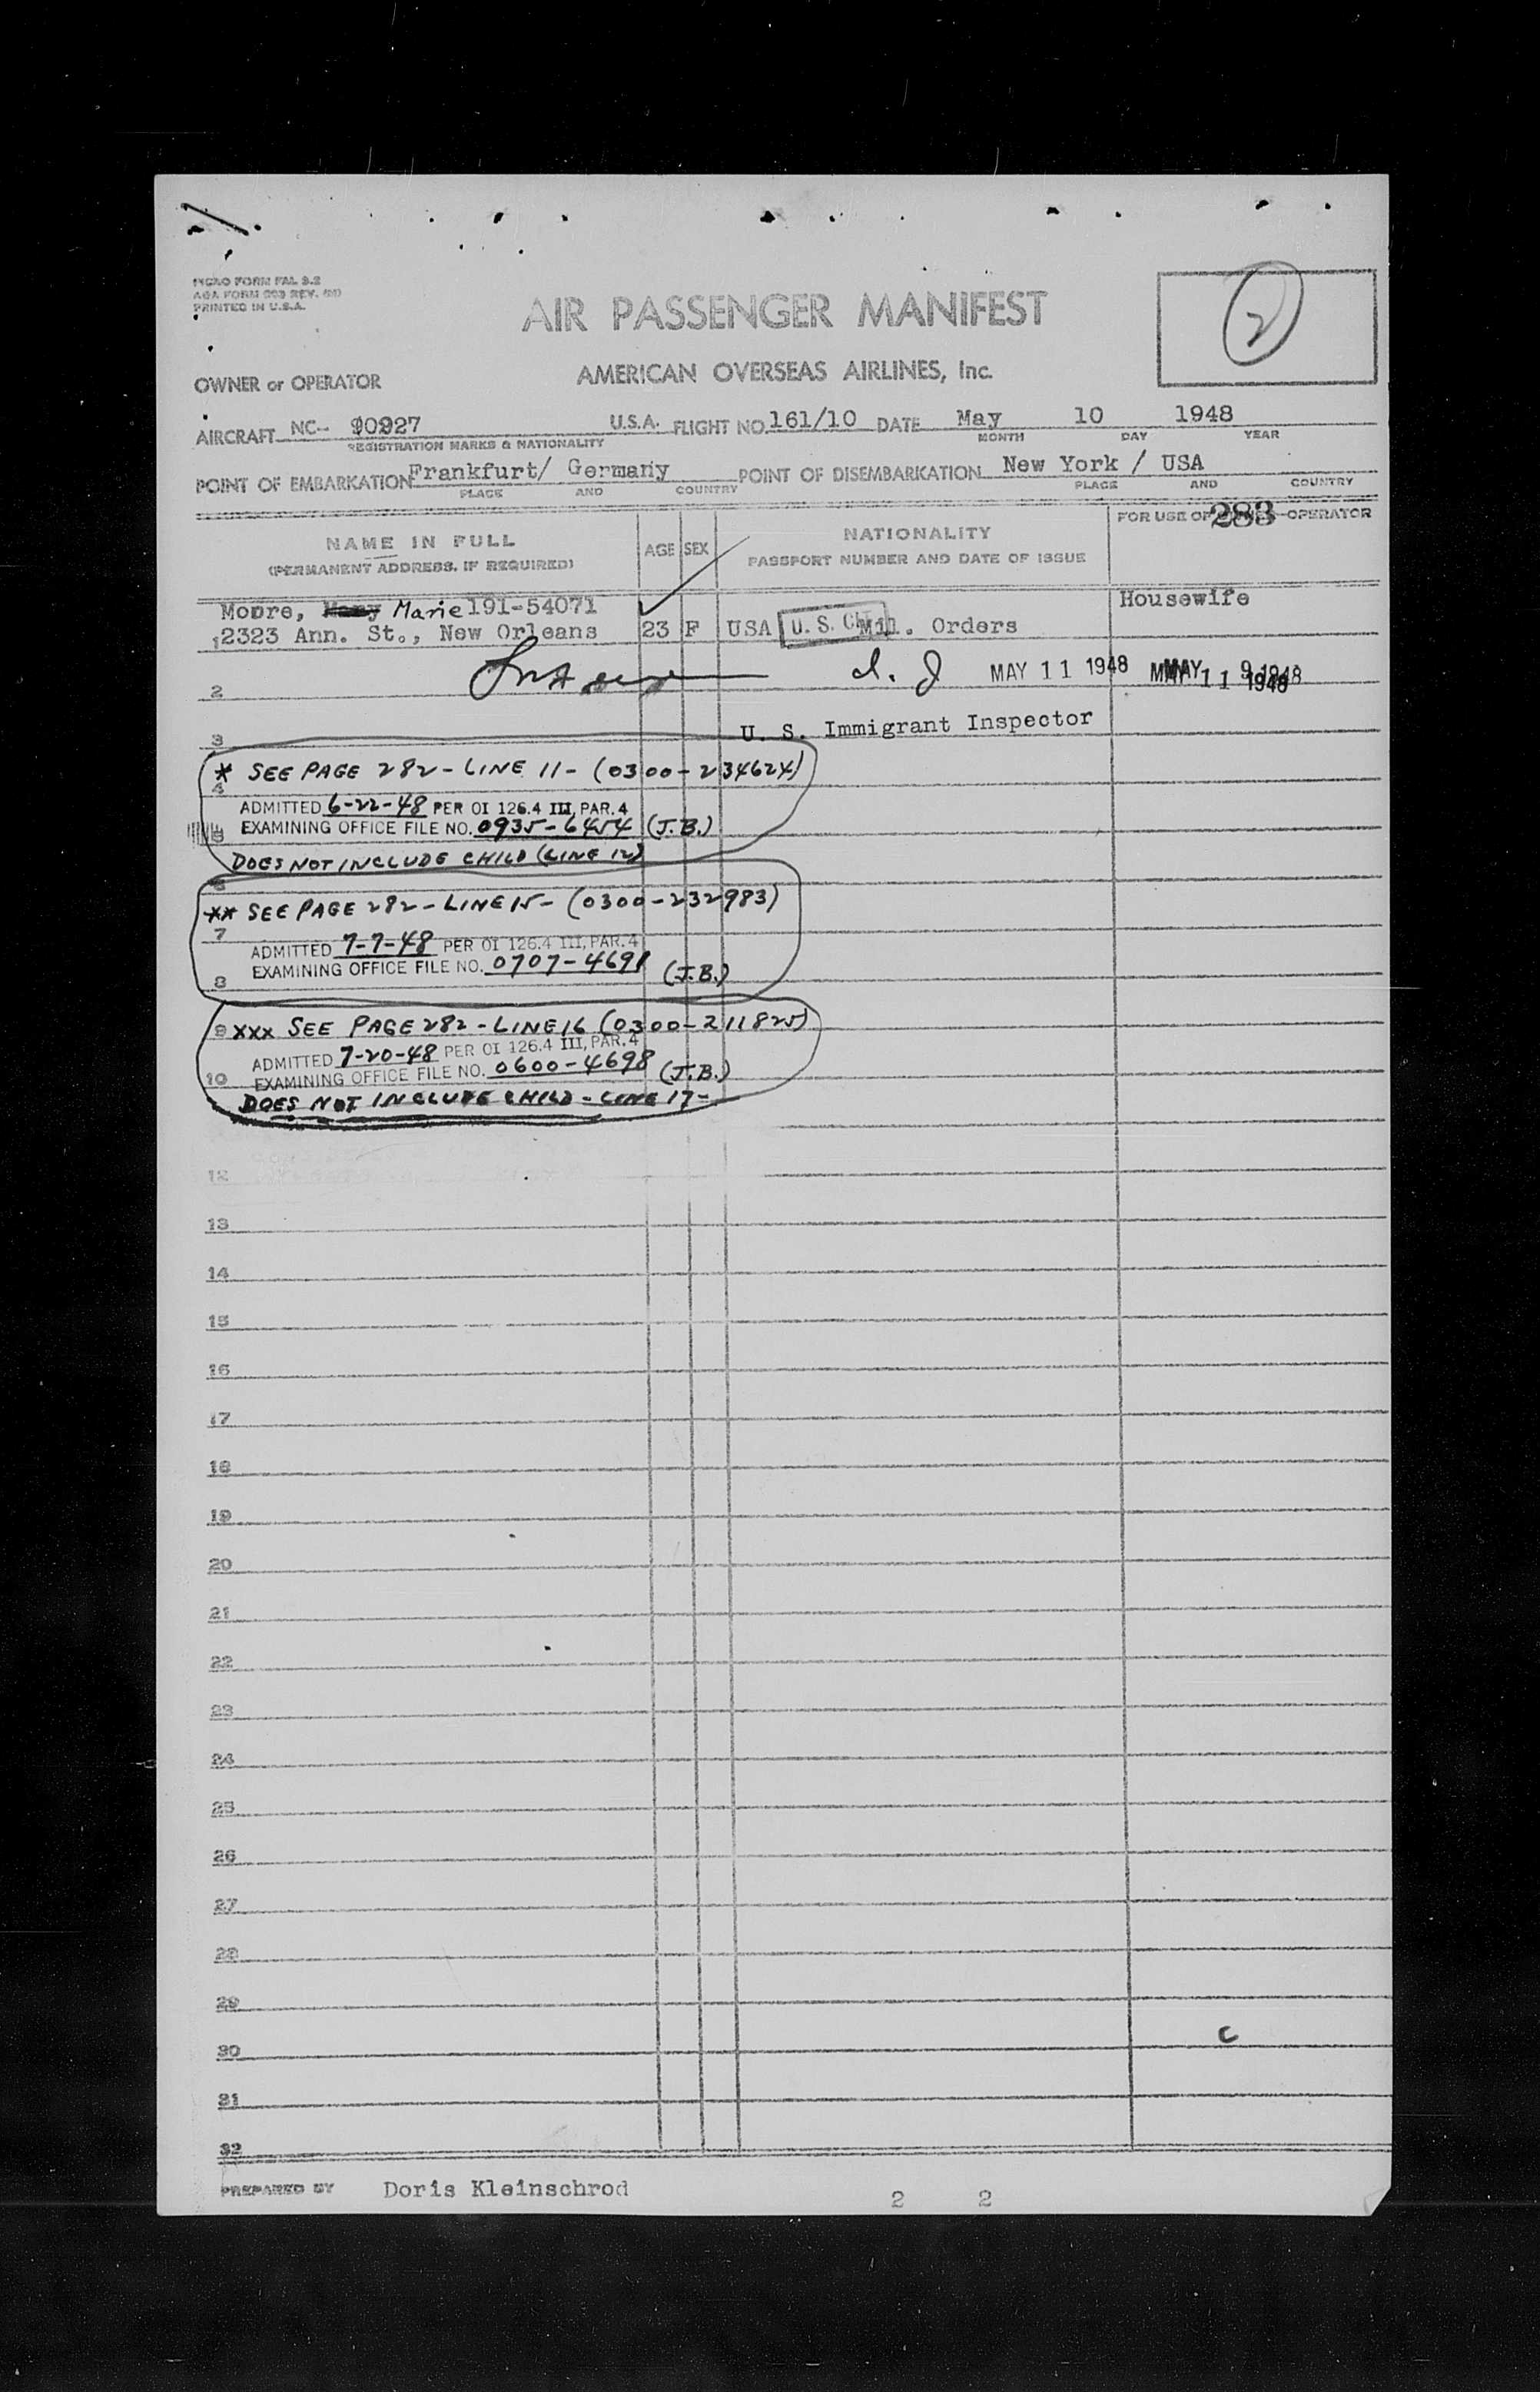 PRINTED IN U.S.A.
AIR PASSENGER MANIFEST
2
AMERICAN OVERSEAS AIRLINES, Inc.
OWNER or OPERATOR
AIRCRAFT NC- 90927 U.S.A. FLIGHT NO. 161/10 DATE May 10 1948
REGISTRATION MARKS & NATIONALITY MONTH DAY YEAR
POINT OF EMBARKATION Frankfurt/ Germany POINT OF DISEMBARKATION New York / USA
PLACE AND COUNTRY PLACE AND COUNTRY
NAME IN FULL AGE SEX NATIONALITY FOR USE OF 283 OPERATOR
(PERMANENT ADDRESS, IF REQUIRED) PASSPORT NUMBER AND DATE OF ISSUE
Moore, Marie 191-54071 Housewife
1 2323 Ann. St., New Orleans 23 F USA U. S. Mil. Orders
2 MAY 11 1948 MAY 11 1948 MAY 9 1948
3 U. S. Immigrant Inspector
* SEE PAGE 282 - LINE 11 - (0300-234624)
4
ADMITTED 6-22-48 PER OI 126.4 III, PAR. 4
5 EXAMINING OFFICE FILE NO. 0935-6454 (J.B.)
DOES NOT INCLUDE CHILD (LINE 12)
6
** SEE PAGE 282 - LINE 15 - (0300-232983)
7 ADMITTED 7-7-48 PER OI 126.4 III, PAR. 4
8 EXAMINING OFFICE FILE NO. 0707-4691 (J.B.)
9 xxx SEE PAGE 282 - LINE 16 (0300-211825)
ADMITTED 7-20-48 PER OI 126.4 III, PAR. 4
10 EXAMINING OFFICE FILE NO. 0600-4698 (J.B.)
DOES NOT INCLUDE CHILD - LINE 17 -
12
13
14
15
16
17
18
19
20
21
22
23
24
25
26
27
28
29
30 C
31
32
PREPARED BY Doris Kleinschrod 2 2